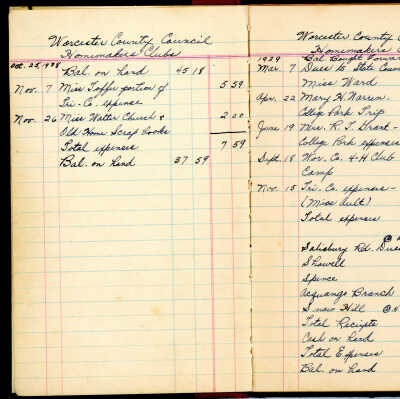 Worcester County Council
Homemakers Clubs
Oct. 25, 1928
Bal. on hand 45 18
Nov. 7 Miss Toffe portion of
Tri-Co. expense 5 59
Nov. 26 Miss Walter Church &
Old Home Scrap Books 2 00
Total expenses 7 59
Bal. on hand 37 59
Worcester County
Homemakers
1929 Bal. Bought Forward
Mar. 7 Dues to State Coun
Miss Ward
Apr. 22 Mary H. Warren
College Park Trip
June 19 Mrs. R. T. Grant -
College Park expenses
Sept. 18 Wor. Co. 4-H Club
Camp
Nov. 15 Tri. Co. expenses -
(Miss Ault)
Total expenses
@
Salisbury Rd. Dues
Showell
Spence
Acquango Branch
Snow Hill @
Total Receipts
Cash on hand
Total Expenses
Bal. on hand